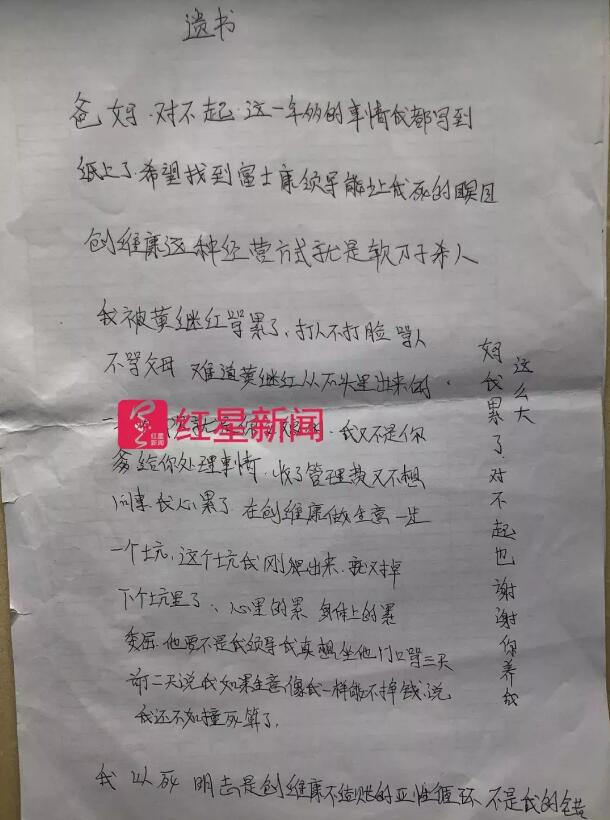 遗书
爸妈.对不起.这一年多的事情我都写到
纸上了.希望找到富士康领导能让我死的瞑目
创维康这种经营方式就是软刀子杀人
我被黄继红骂累了.打人不打脸骂人
不骂父母 难道黄继红从石头里出来的.
就是你 我又不是你
红星新闻
红星新闻
给你处理事情.收了管理费又不想
问事我心累了 在创维康做生意一步
一个坑.这个坑我刚爬出来.就又掉
下个坑里了.心里的累 身体上的累
委屈.他要不是我领导我真想坐他门口骂三天
前二天说我如果生意像我一样能不掉钱.说
我还不如撞死算了.
我以死明志是创维康不结账的恶性循环 不是我的错
妈我累了对不起也谢谢你养我
这么大